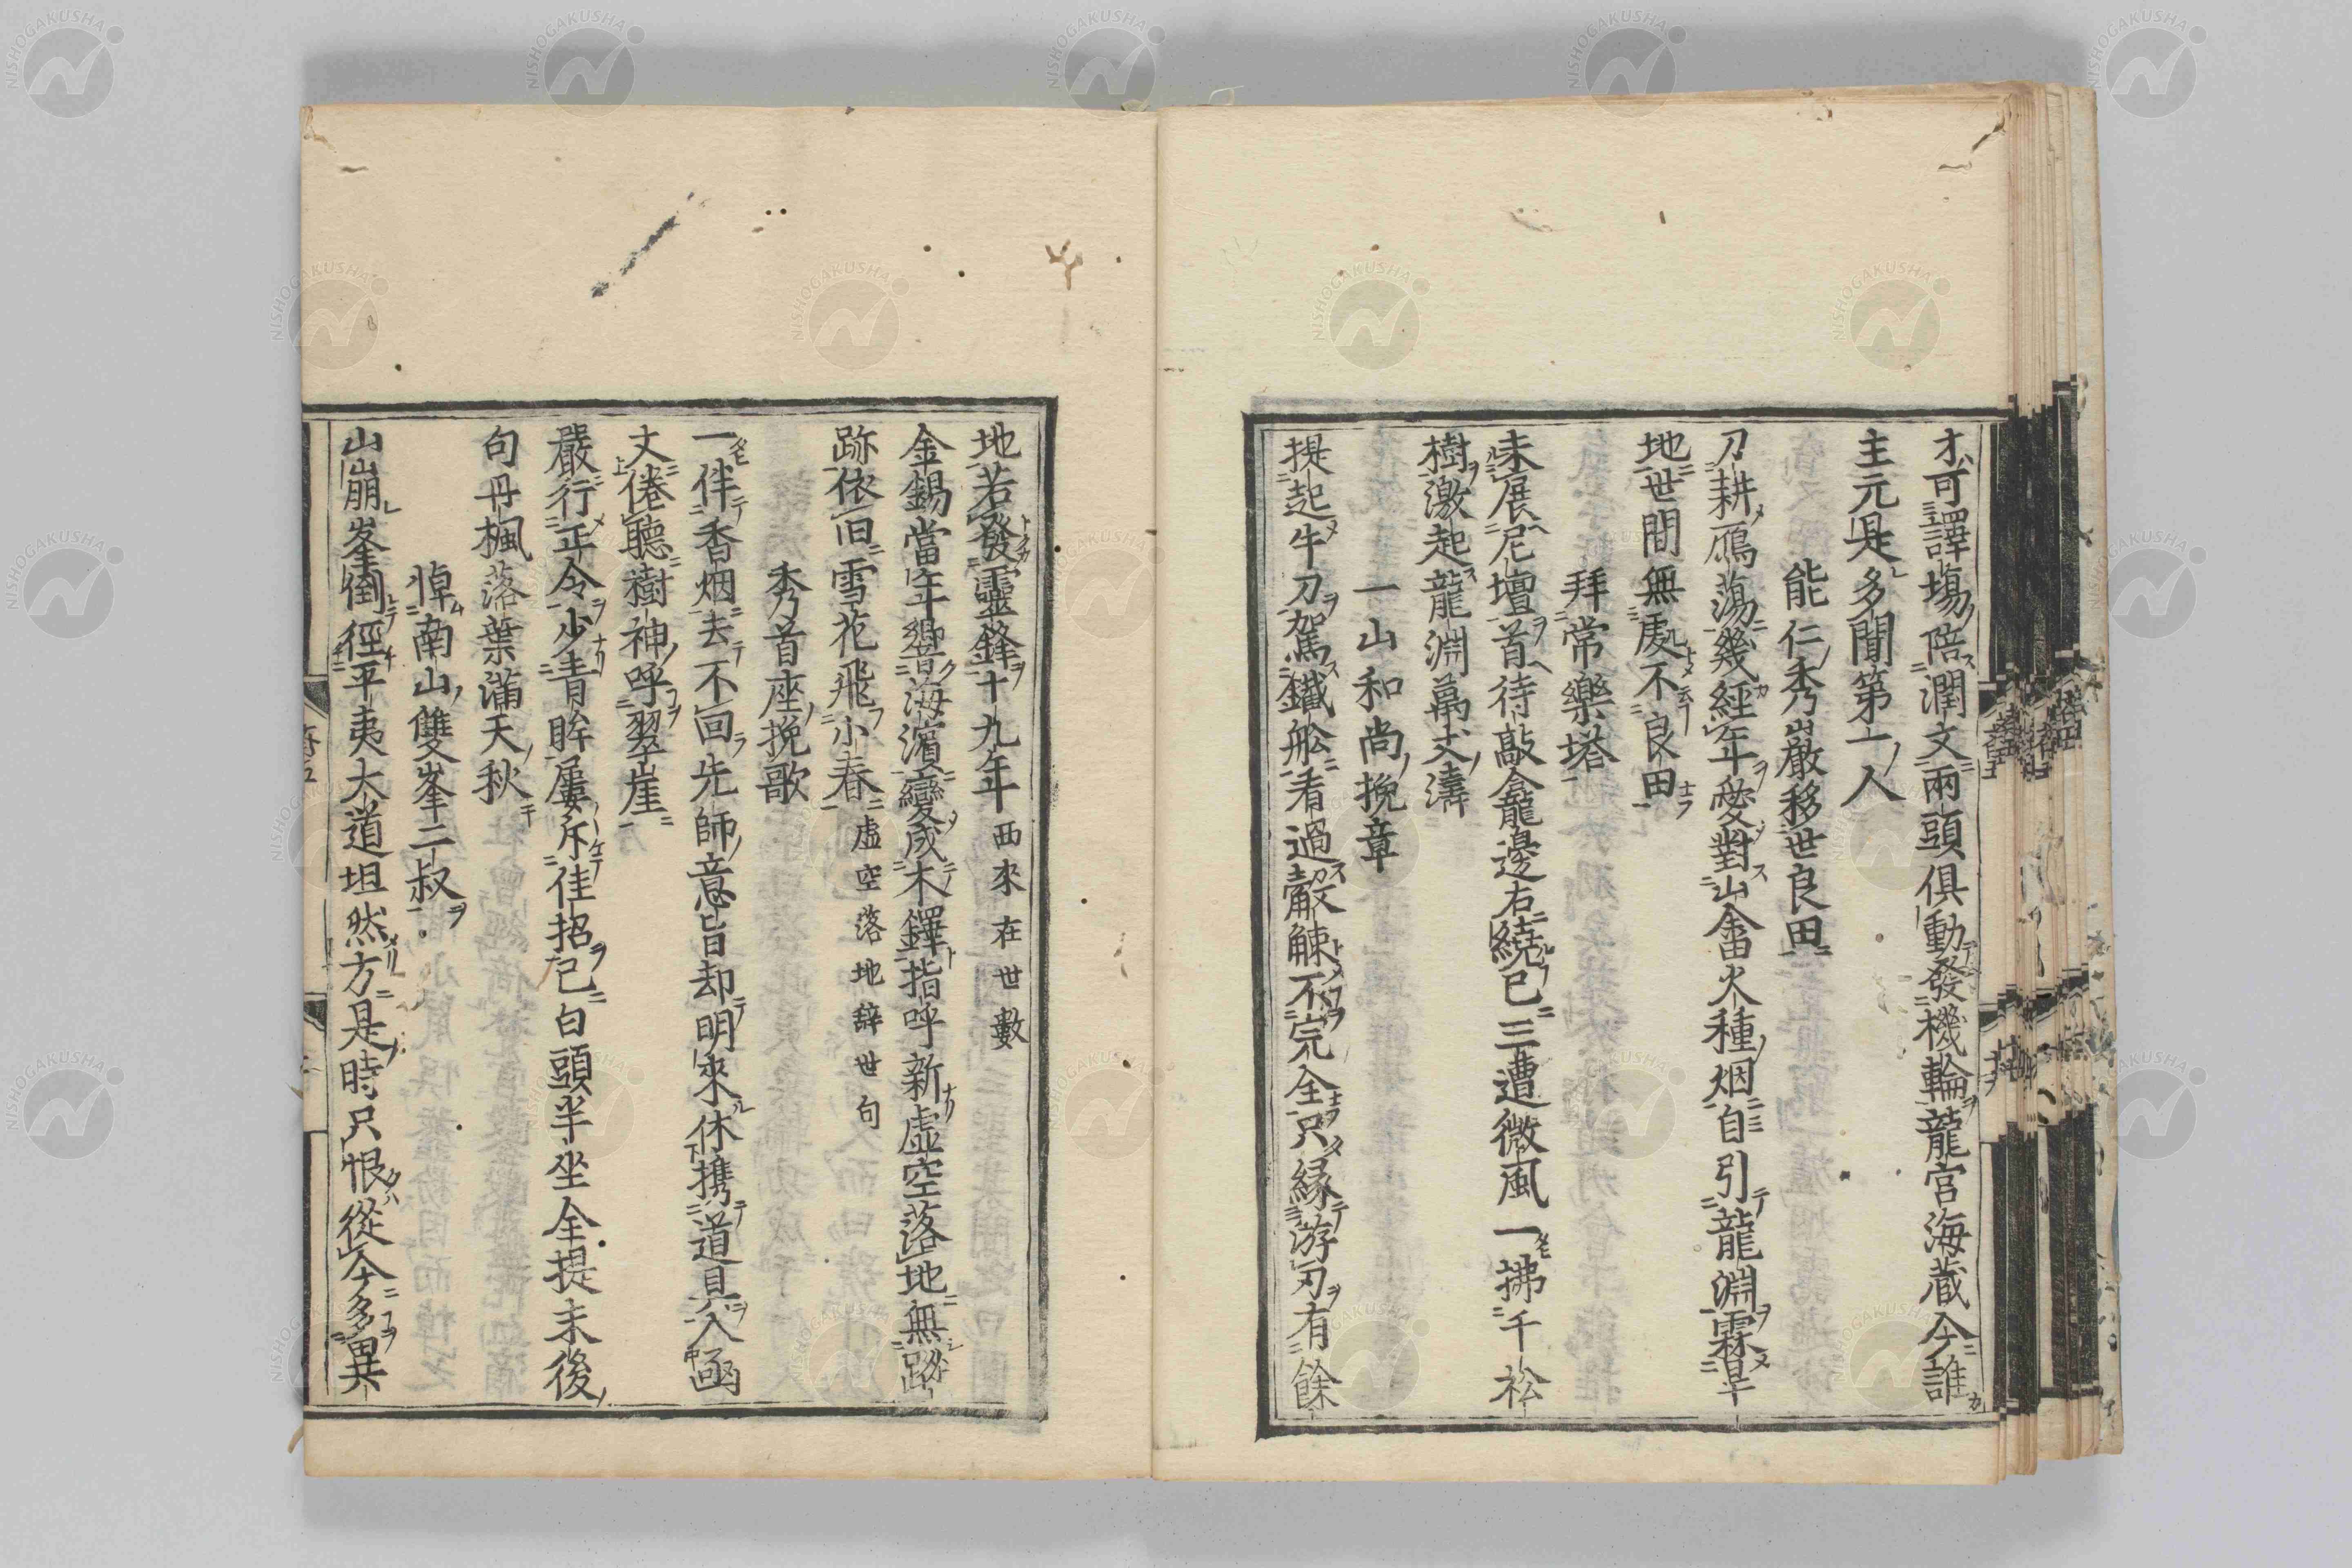 才可譯場陪潤文兩頭俱動發機輪龍宮海藏今誰
主元是多聞第一人
能仁秀岩嚴移世良田
刀耕鴈蕩幾經年愛對山畬火種烟自引龍淵霖旱
地世間無處不良田
拜常樂塔
未展尼壇首待敲龕邊右繞已三遭微風一拂千松
樹激起龍淵萬丈濤
一山和尚挽章
提起牛刀駕鐵舩看過觳觫不完全只縁游刃有餘
地若發靈鋒十九年西來在世數
金錫當年響海濱變成木鐸指呼新虛空落地無蹤
跡依旧雪花飛小春虛空落地辭世句
秀首座挽歌
一伴香烟去不回先師意旨却明來休携道具入函
丈倦聽樹神呼翠崖
嚴行正令少青眸屢斥佳招已白頭半坐全提末後
句丹楓落葉滿天秋
悼南山雙峯二叔
山崩峯倒徑平夷大道坦然方是時只恨從今多異